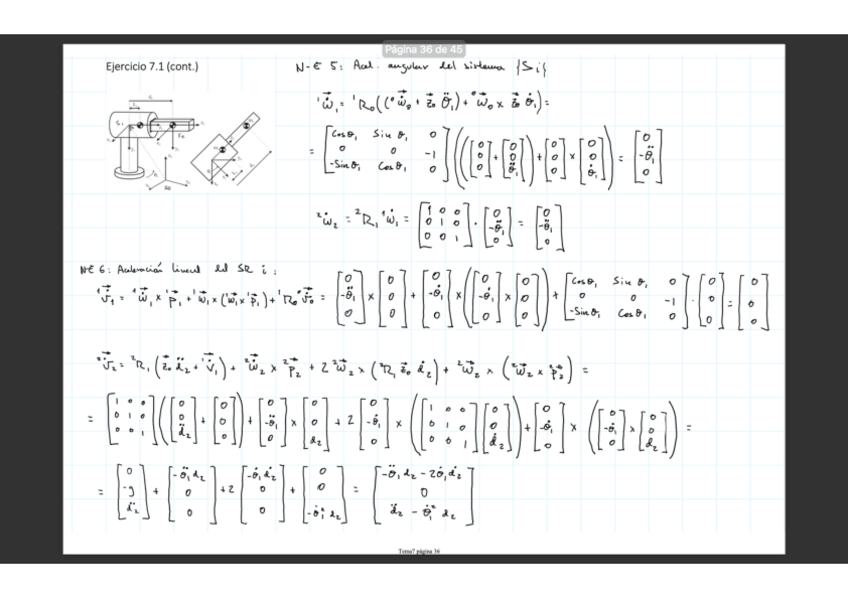 Página 36 de 45
Ejercicio 7.1 (cont.)
N-E 5: Acel. angular del sistema {Si}
¹ω̇₁ = ¹R₀((⁰ω̇₀ + z₀ θ̈₁) + ⁰ω₀ × z₀ θ̇₁) =
= [Cosθ₁ Sinθ₁ 0; 0 0 -1; -Sinθ₁ Cosθ₁ 0] (([0; 0; 0] + [0; 0; θ̈₁]) + [0; 0; 0] × [0; 0; θ̇₁]) = [0; -θ̈₁; 0]
²ω̇₂ = ²R₁ ¹ω̇₁ = [1 0 0; 0 1 0; 0 0 1] · [0; -θ̈₁; 0] = [0; -θ̈₁; 0]
N-E 6: Aceleración lineal del SR i:
¹v̇₁ = ¹ω̇₁ × ¹p₁ + ¹ω₁ × (¹ω₁ × ¹p₁) + ¹R₀ ⁰v̇₀ = [0; -θ̈₁; 0] × [0; 0; 0] + [0; -θ̇₁; 0] × ([0; -θ̇₁; 0] × [0; 0; 0]) + [Cosθ₁ Sinθ₁ 0; 0 0 -1; -Sinθ₁ Cosθ₁ 0] · [0; 0; 0] = [0; 0; 0]
²v̇₂ = ²R₁ (z₀ d̈₂ + ¹v̇₁) + ²ω̇₂ × ²p₂ + 2 ²ω₂ × (²R₁ z₀ ḋ₂) + ²ω₂ × (²ω₂ × ²p₂) =
= [1 0 0; 0 1 0; 0 0 1] ([0; 0; d̈₂] + [0; 0; 0]) + [0; -θ̈₁; 0] × [0; 0; d₂] + 2 [0; -θ̇₁; 0] × ([1 0 0; 0 1 0; 0 0 1] [0; 0; ḋ₂]) + [0; -θ̇₁; 0] × ([0; -θ̇₁; 0] × [0; 0; d₂]) =
= [0; -g; d̈₂] + [-θ̈₁ d₂; 0; 0] + 2 [-θ̇₁ ḋ₂; 0; 0] + [0; 0; -θ̇₁² d₂] = [-θ̈₁ d₂ - 2θ̇₁ ḋ₂; 0; d̈₂ - θ̇₁² d₂]
Tema7 página 36